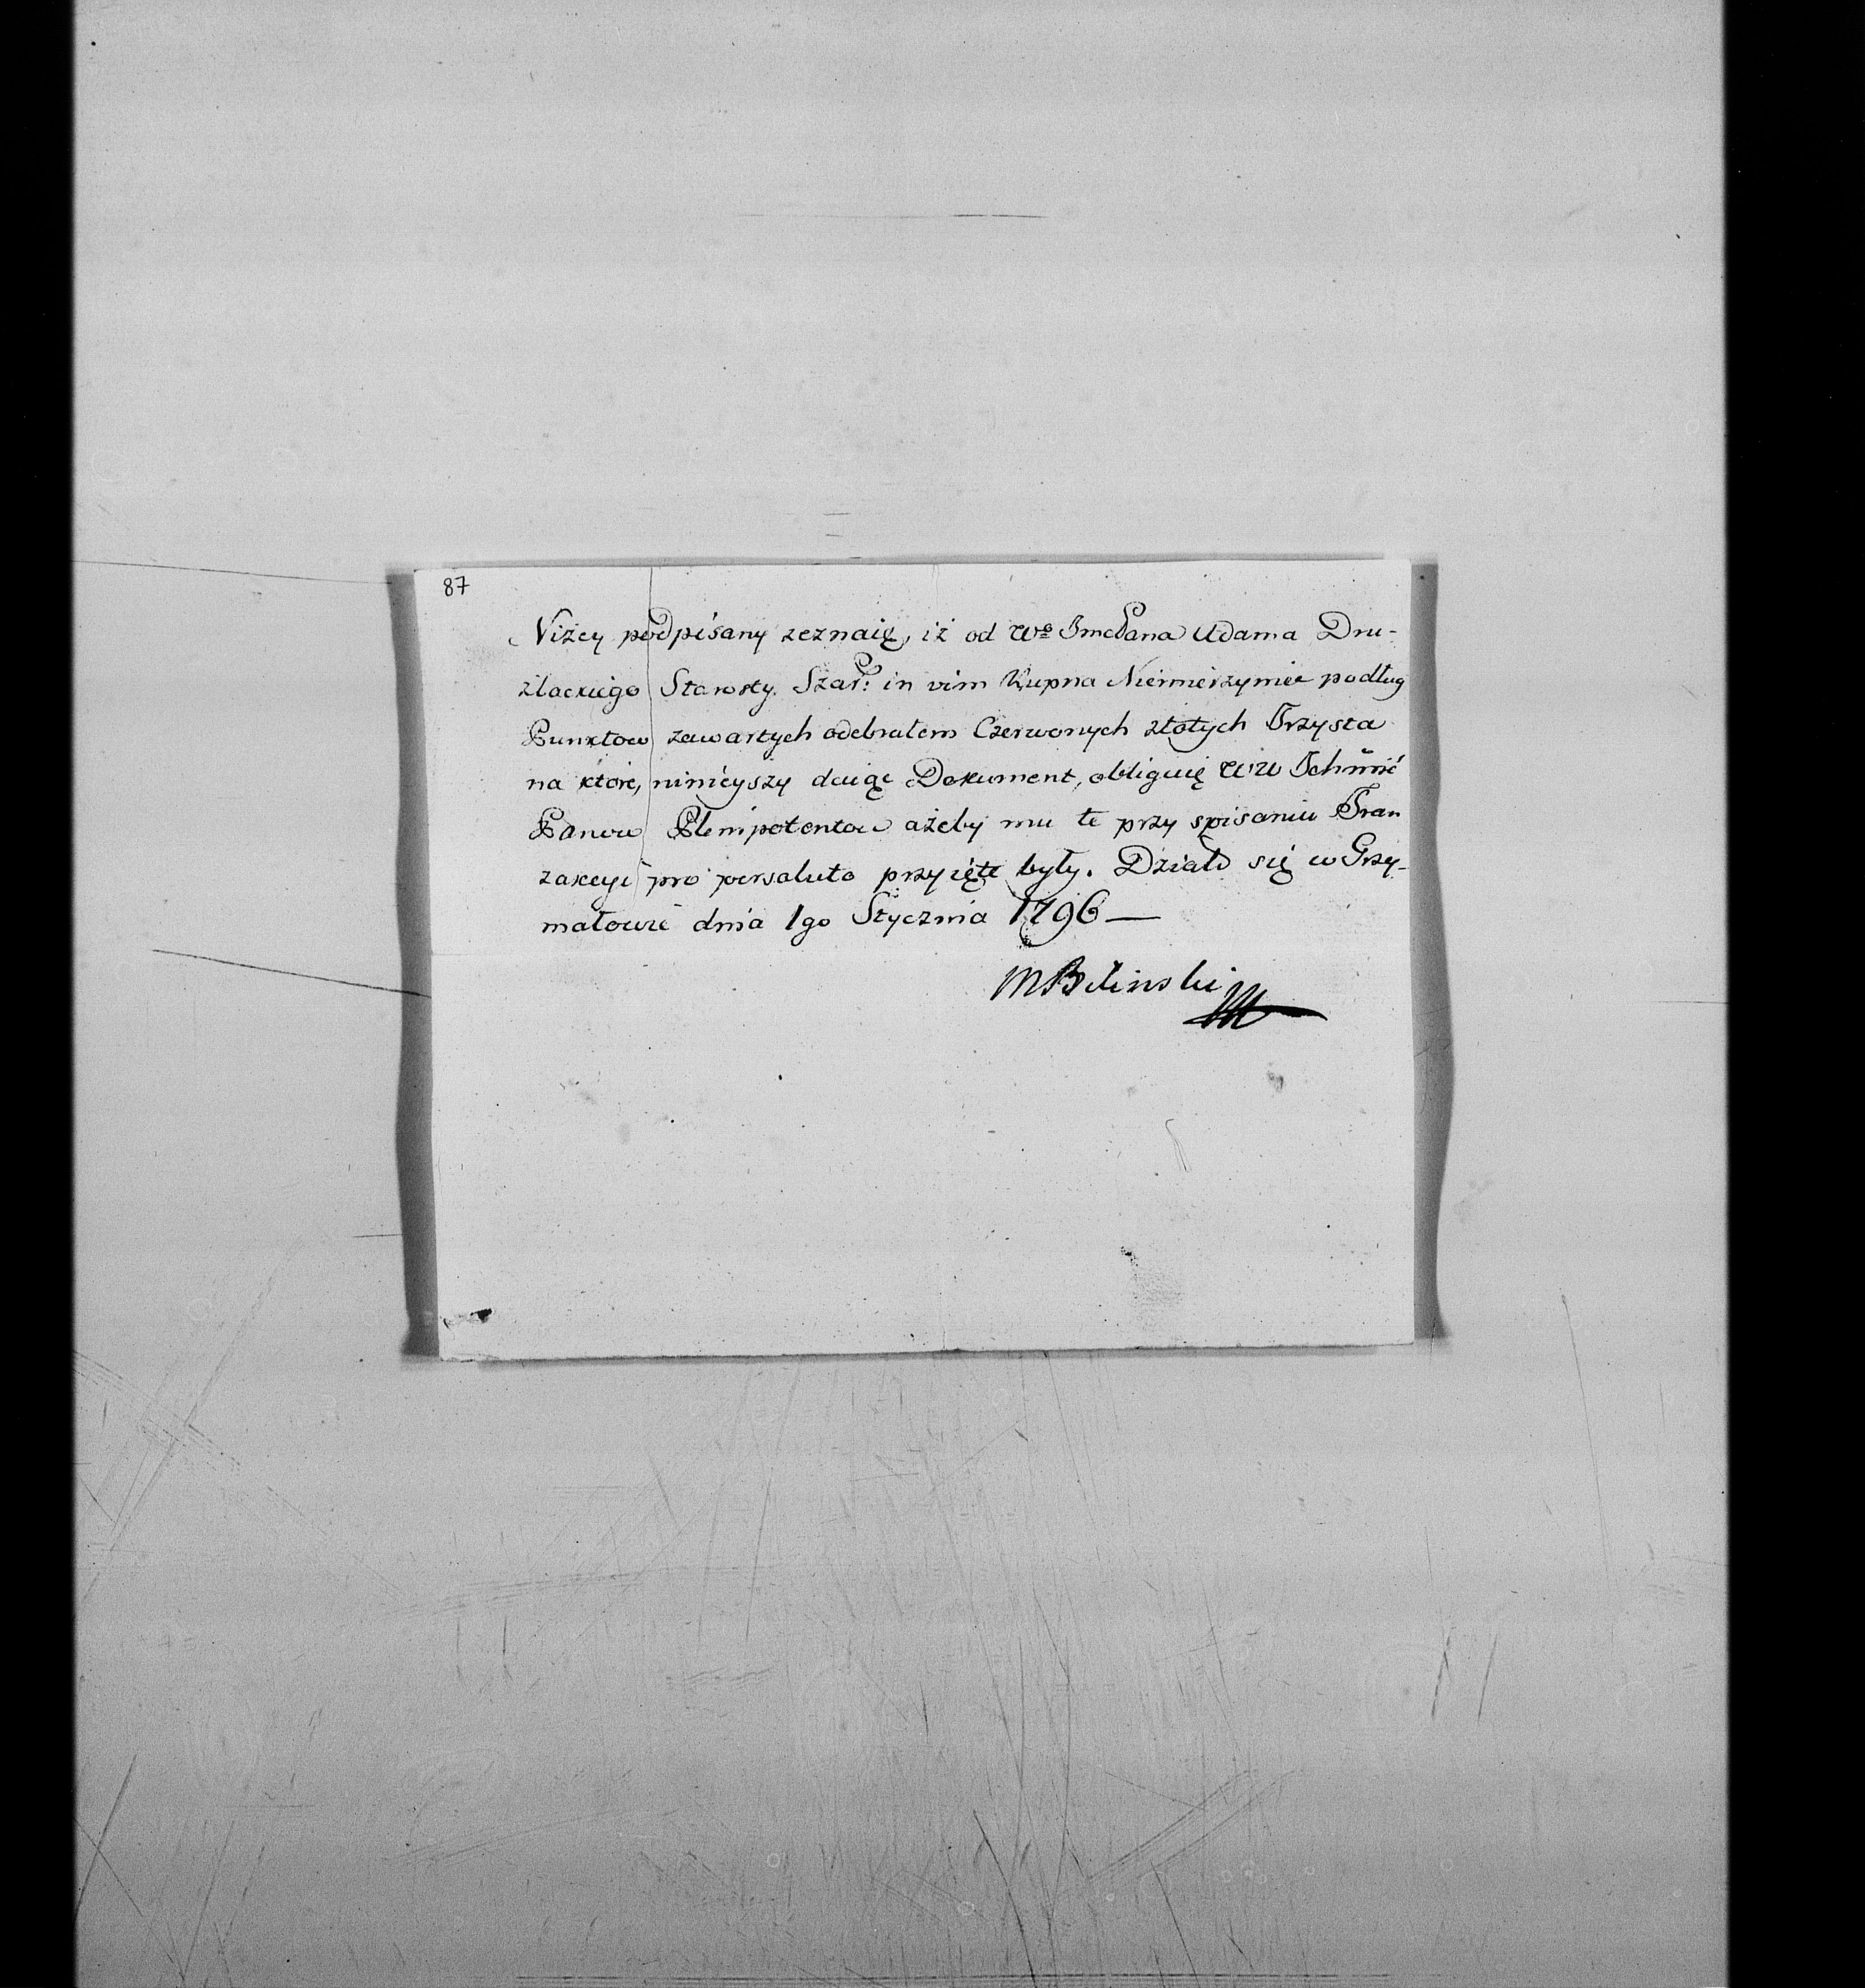 87
Niżey podpisany zeznaię, iż od Wo ImcPana Adama Dru-
żlackiego Starosty. Szar: in vim Kupna Niemierzyniec podług
Punktow zawartych odebrałem Czerwonych złotych Trzysta
na ktore, ninieyszy daiąc Dokument, obliguię WW Ichmść
Panow Plenipotentow ażeby mu te przy spisaniu Tran
zakcyi pro persoluto przyięte były. Działo się w Grzy-
małowie dnia 1go Stycznia 1796 —
MBilinski